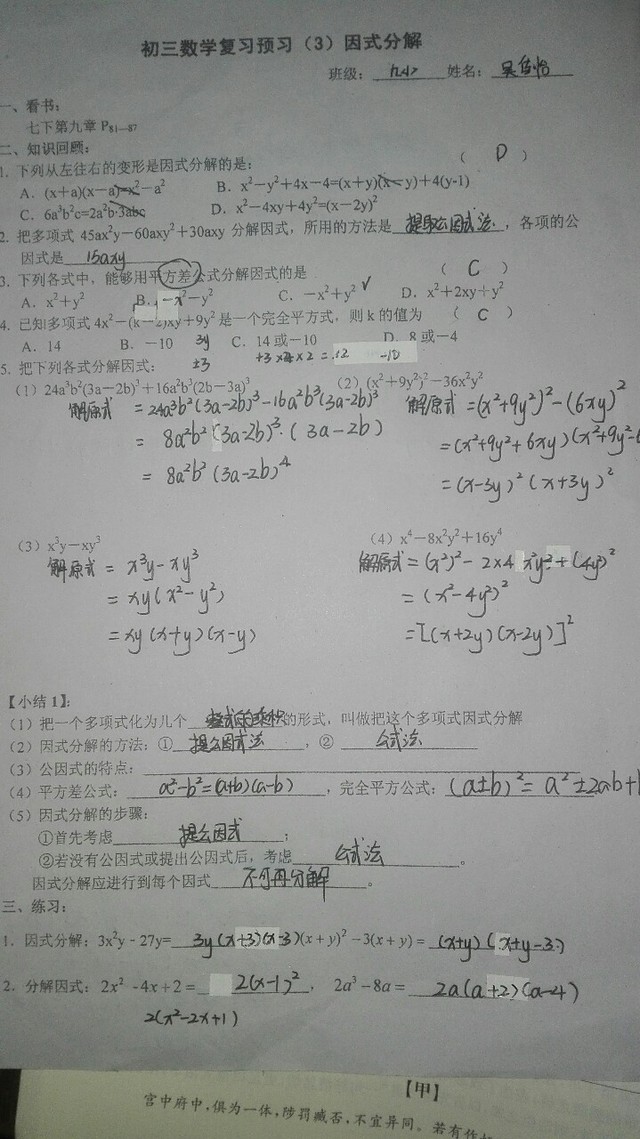 初三数学复习预习（3）因式分解
班级： 九小 姓名： 吴
一、看书：
七下第九章 P81—87
二、知识回顾：
1. 下列从左往右的变形是因式分解的是： （ D ）
A．(x+a)(x−a)=x²−a² B．x²−y²+4x−4=(x+y)(x−y)+4(y-1)
C．6a³b²c=2a²b·3abc D．x²−4xy+4y²=(x−2y)²
2. 把多项式 45ax²y−60axy²+30axy 分解因式，所用的方法是 提取公因式法 ，各项的公
因式是 15axy
3. 下列各式中，能够用平方差公式分解因式的是 （ C ）
A．x²+y² B．−x²−y² C．−x²+y² √ D．x²+2xy+y²
4. 已知多项式 4x²−(k−2)xy+9y² 是一个完全平方式，则 k 的值为 （ C ）
A．14 B．−10 3y C．14 或−10 D．8 或−4
±3 +3×2×2=12 -10
5. 把下列各式分解因式：
（1）24a³b²(3a−2b)³+16a²b³(2b−3a)³ （2）(x²+9y²)²−36x²y²
解原式 = 24a³b²(3a-2b)³-16a²b³(3a-2b)³ 解原式 =(x²+9y²)²-(6xy)²
= 8a²b²(3a-2b)³·(3a-2b) =(x²+9y²+6xy)(x²+9y²-6
= 8a²b²(3a-2b)⁴ =(x-3y)²(x+3y)²
（3）x³y−xy³ （4）x⁴−8x²y²+16y⁴
解原式 = x³y-xy³ 解原式 =(x²)²-2×4x²y²+(4y²)²
= xy(x²-y²) =(x²-4y²)²
= xy(x+y)(x-y) =[(x+2y)(x-2y)]²
【小结 1】：
（1）把一个多项式化为几个 整式的乘积 的形式，叫做把这个多项式因式分解
（2）因式分解的方法：① 提公因式法 ，② 公式法
（3）公因式的特点：
（4）平方差公式： a²-b²=(a+b)(a-b) ，完全平方公式： (a±b)²=a²±2ab+b
（5）因式分解的步骤：
①首先考虑 提公因式 ；
②若没有公因式或提出公因式后，考虑 公式法 。
因式分解应进行到每个因式 不可再分解 。
三、练习：
1．因式分解：3x²y - 27y= 3y(x+3)(x-3) (x+y)²−3(x+y)= (x+y)(x+y-3)
2．分解因式：2x² -4x+2= 2(x-1)² ， 2a³−8a= 2a(a+2)(a-4)
2(x²-2x+1)
【甲】
宫中府中，俱为一体，陟罚臧否，不宜异同。若有作